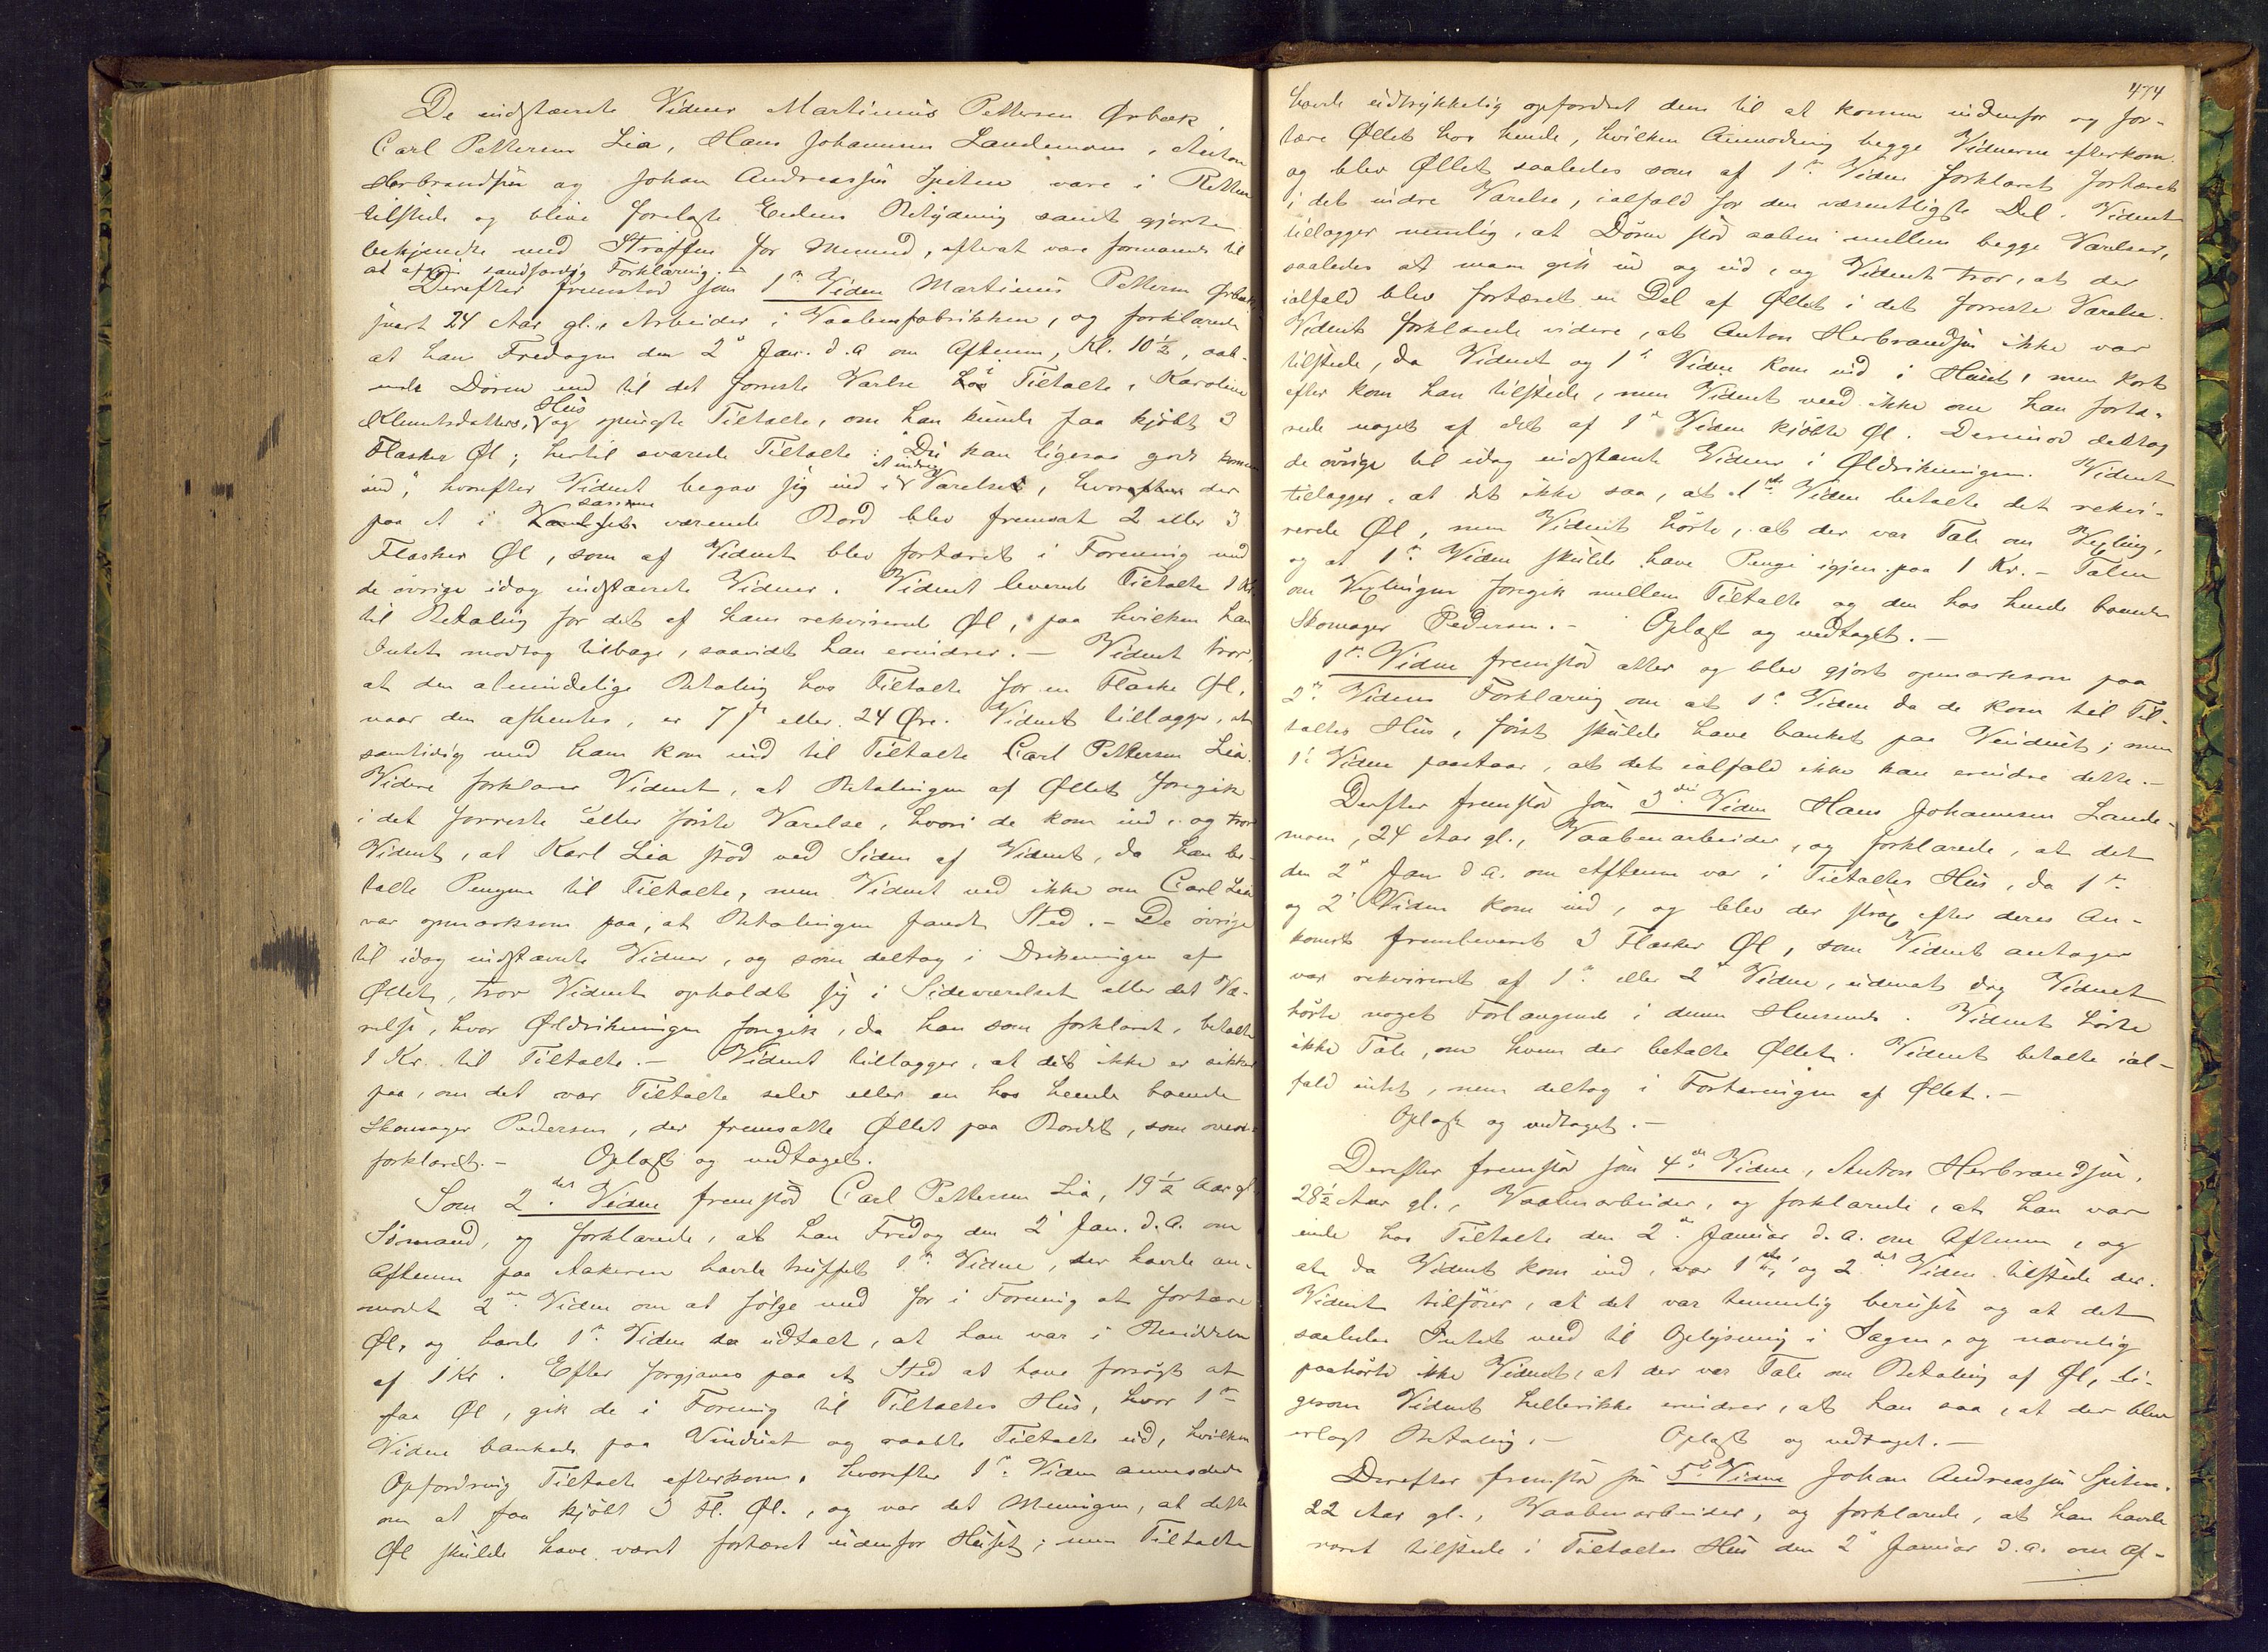 De indstævnte Vidner Martinius Pettersen Ørbæk,
Carl Pettersen Lia, Hans Johannesen Landemoen, Anton
Herbrandsøn og Johan Andreassøn Spiten vare i Retten
tilstede og bleve forelagte Eedens Betydning samt gjorte
bekjendte med Straffen for Meneed, efterat være formanede til
at afgive sandfærdig Forklaring. –
Derefter fremstod som 1ste Vidne Martinius Pettersen Ørbæk
snart 24 Aar gl., Arbeider i Vaabenfabrikken, og forklarede
at han Fredagen den 2den Jan. d. A. om Aftenen, Kl. 10½, aab-
nede Døren ind til det forreste Værelse hos Tiltalte, Karoline
Klemetsdatters, Hus og spurgte Tiltalte, om han kunde faa kjøbt 3
Flasker Øl; hertil svarede Tiltalte: "Du kan ligesaa godt komme
ind", hvorefter Vidnet begav sig ind i et indre Værelse, hvor der
paa et i samme værende Bord blev fremsat 2 eller 3
Flasker Øl, som af Vidnet blev fortæret i Forening med
de øvrige idag indstævnte Vidner. Vidnet leverede Tiltalte 1 Kr.
til Betaling for det af ham rekvirerede Øl, paa hvilken han
Intet modtog tilbage, saavidt han erindrer. – Vidnet tror,
at den almindelige Betaling hos Tiltalte for en Flaske Øl,
naar den afhentes, er 7 s eller 24 Øre. Vidnet tillægger, at
samtidig med ham kom ind til Tiltalte Carl Pettersen Lia.
Videre forklarer Vidnet, at Betalingen af Øllet foregik
i det forreste eller første Værelse, hvori de kom ind, og tror
Vidnet, at Karl Lia stod ved Siden af Vidnet, da han be-
talte Pengene til Tiltalte, men Vidnet ved ikke om Carl Lia
var opmærksom paa, at Betalingen fandt Sted. – De øvrige
til idag indstævnte Vidner, og som deltog i Drikningen af
Øllet, tror Vidnet opholdt sig i Sideværelset eller det Væ-
relse, hvor Øldrikningen foregik, da han som forklaret, betalte
1 Kr. til Tiltalte. – Vidnet tillægger, at det ikke er sikker
paa, om det var Tiltalte selv eller en hos hende boende
Skomager Pedersen, der fremsatte Øllet paa Bordet, som oven-
forklaret. – Oplæst og vedtaget.
Som 2det Vidne fremstod Carl Pettersen Lia, 19½ Aar gl.
Sømand, og forklarede, at han Fredag den 2den Jan. d. A. om
Aftenen paa Aakeren havde truffet 1ste Vidne, der havde an-
modet 2det Vidne om at følge med for i Forening at fortære
Øl, og havde 1ste Vidne da udtalt, at han var i Besiddelse
af 1 Kr. Efter forgjæves paa et Sted at have forsøgt at
faa Øl, gik de i Forening til Tiltaltes Hus, hvor 1ste
Vidne bankede paa Vinduet og raabte Tiltalte ud, hvilken
Opfordring Tiltalte efterkom, hvorefter 1ste Vidne anmodede
om at faa kjøbt 3 Fl. Øl., og var det Meningen, at dette
Øl skulde have været fortæret udenfor Huset; men Tiltalte
474
havde udtrykkelig opfordret dem til at komme indenfor og for-
tære Øllet hos hende, hvilken Anmodning begge Vidnerne efterkom
og blev Øllet saaledes som af 1ste Vidne forklaret fortæret
i det indre Værelse, ialfald for den væsentligste Del. Vidnet
tillægger nemlig, at Døren stod aaben mellem begge Værelser,
saaledes at man gik ind og ud, og Vidnet tror, at der
ialfald blev fortæret en Del af Øllet i det forreste Værelse.
Vidnet forklarede videre, at Anton Herbrandsøn ikke var
tilstede, da Vidnet og 1ste Vidne kom ind i Huset, men kort
efter kom han tilstede, men Vidnet veed ikke om han fortæ-
rede noget af det af 1ste Vidne kjøbte Øl. Derimod deltog
de øvrige til idag indstævnte Vidner i Øldrikningen. Vidnet
tillægger, at det ikke saa, at 1ste Vidne betalte det rekvi-
rerede Øl, men Vidnet hørte, at der var Tale om Vexling,
og at 1ste Vidne skulde have Penge igjen paa 1 Kr. – Talen
om Vexlingen foregik mellem Tiltalte og den hos hende boende
Skomager Pedersen. – Oplæst og vedtaget. –
1ste Vidne fremstod atter og blev gjort opmærksom paa
2det Vidnes Forklaring om at 1ste Vidne da de kom til Til-
taltes Hus, først skulde have banket paa Vinduet; men
1ste Vidne paastaar, at det ialfald ikke kan erindre dette. –
Derefter fremstod som 3die Vidne Hans Johannesen Lande-
moen, 24 Aar gl., Vaabenarbeider, og forklarede, at det
den 2den Jan. d. A. om Aftenen var i Tiltaltes Hus, da 1ste
og 2det Vidne kom ind, og blev der strax efter deres An-
komst frembaaret 3 Flasker Øl, som Vidnet antager
var rekvireret af 1ste eller 2det Vidne, uden at dog Vidnet
hørte noget Forlangende i denne Henseende. Vidnet hørte
ikke Tale, om hvem der betalte Øllet. Vidnet betalte ial-
fald intet, men deltog i Fortæringen af Øllet. –
Oplæst og vedtaget. –
Derefter fremstod som 4de Vidne, Anton Herbrandsøn,
28½ Aar gl., Vaabenarbeider, og forklarede, at han var
inde hos Tiltalte den 2den Januar d. A. om Aftenen, og
at, da Vidnet kom ind, var 1ste og 2det Vidne tilstede der.
Vidnet tilføier, at det var temmelig beruset og at det
saaledes Intet veed til Oplysning i Sagen, og navnlig
paahørte ikke Vidnet, at der var Tale om Betaling af Øl, li-
gesom Vidnet hellerikke erindrer, at han saa, at der blev
erlagt Betaling. – Oplæst og vedtaget. –
Derefter fremstod som 5te Vidne Johan Andreassøn Spiten.
22 Aar gl., Vaabenarbeider, og forklarede, at han havde
været tilstede i Tiltaltes Hus den 2den Januar d. A. om Af-